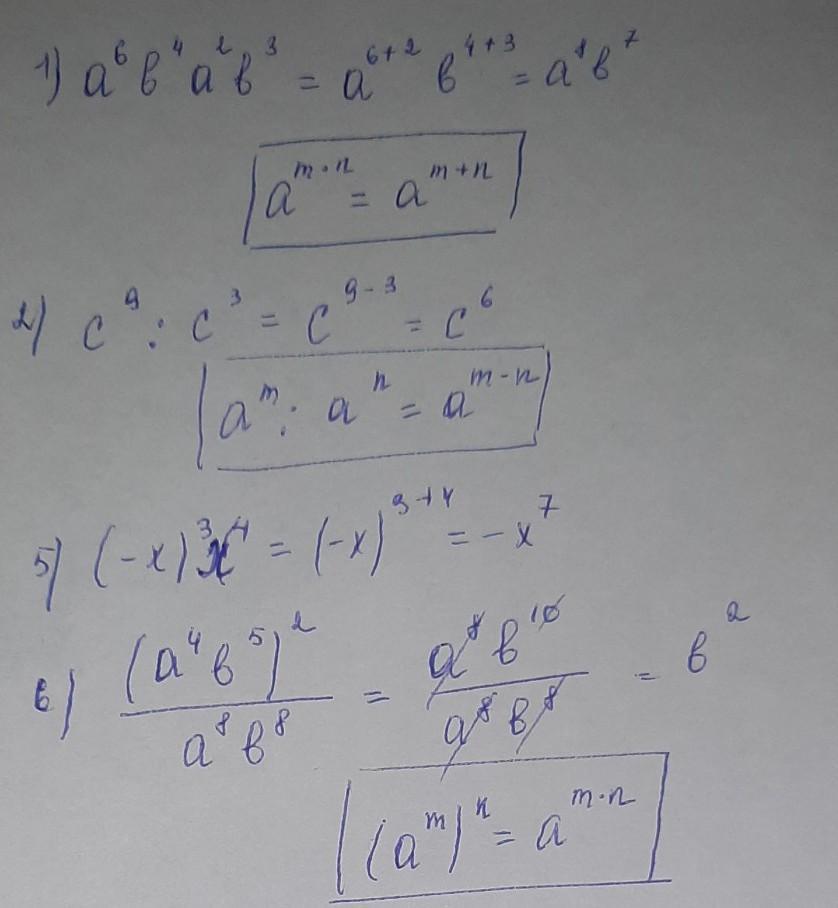 1) a⁶ b⁴ a² b³ = a⁶⁺² b⁴⁺³ = a⁸ b⁷
a^(m·n) = a^(m+n)
2) c⁹ : c³ = c⁹⁻³ = c⁶
a^m : a^n = a^(m-n)
5) (-x)³ x⁴ = (-x)³⁺⁴ = -x⁷
6) (a⁴ b⁵)² / a⁸ b⁸ = a⁸ b¹⁰ / a⁸ b⁸ = b²
(a^m)^n = a^(m·n)